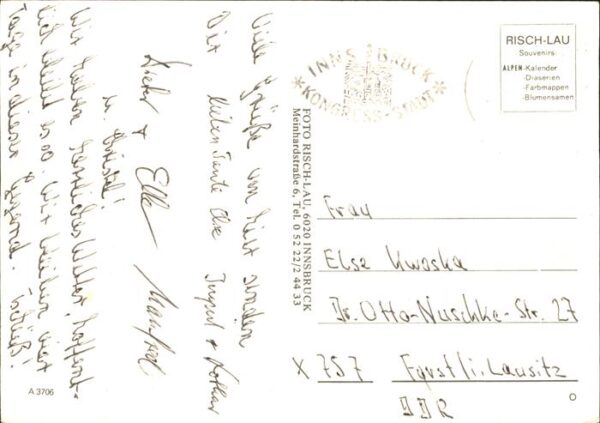 Viele Grüße von hier senden
Dir lieben Tante Else Lothar
Dieter + Elke Manfred
Wir haben herrliches Wetter, hoffent-
lich bleibt es so. Wir bleiben vier
Tage in dieser Gegend. Tschüß!
A 3706
INNSBRUCK
KONGRESS-STADT
FOTO RISCH-LAU, 6020 INNSBRUCK
Meinhardstraße 6, Tel. 0 52 22/2 44 33
RISCH-LAU
Souvenirs:
ALPEN-Kalender
-Diaserien
-Farbmappen
-Blumensamen
Frau
Else Kwoska
Dr. Otto-Nuschke-Str. 27
X 757 Forst i. Lausitz
DDR